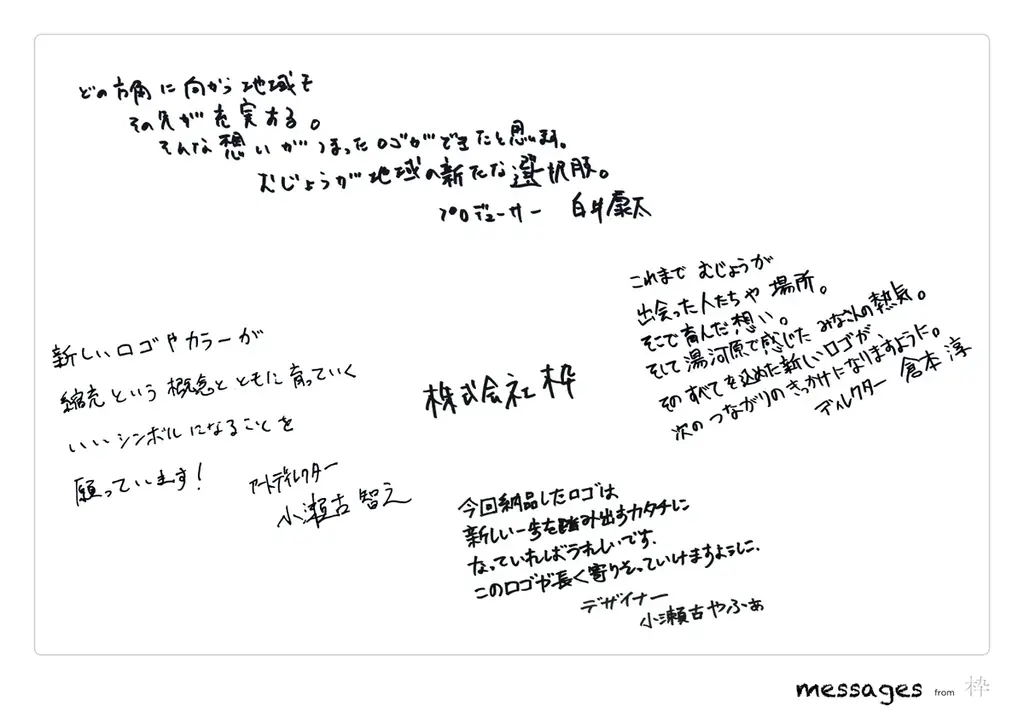 どの方角に向かう地域も
その先が充実する。
そんな想いがつまったロゴができたと思います。
むじょうが地域の新たな選択肢。
プロデューサー 白井康太
これまで むじょうが
出会った人たちや 場所。
そこで育んだ想い。
そして湯河原で感じた みなさんの熱気。
そのすべてを込めた新しいロゴが
次のつながりのきっかけになりますように。
ディレクター 倉本 淳
新しいロゴやカラーが
縮充という概念とともに育っていく
いいシンボルになることを
願っています!
アートディレクター
小瀬古 智之
株式会社 枠
今回納品したロゴは
新しい一歩を踏み出すカタチに
なっていればうれしいです.
このロゴが長く寄りそっていけますように.
デザイナー
小瀬古やふぁ
messages from 枠